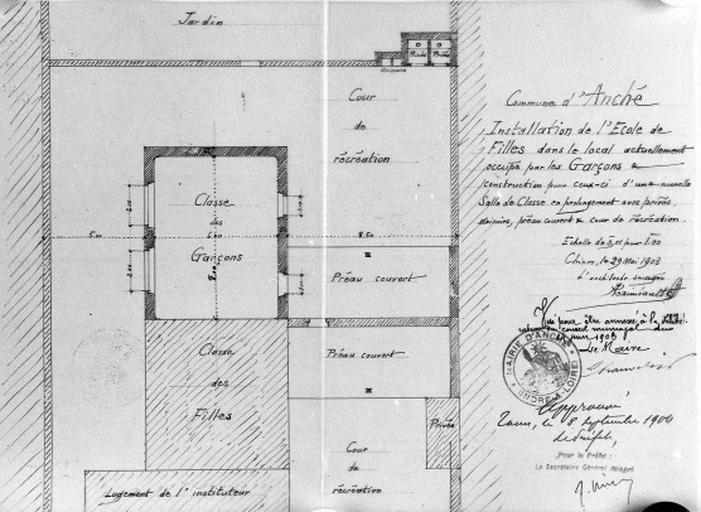 Jardin
Privés Privés
Urinoirs
Cour
de
récréation
Classe
des
Garçons
5.00
6.00
8.50
8.00
Préau couvert
Préau couvert
Classe
des
Filles
Privés
Cour
de
récréation
Logement de l'instituteur
Commune d'Anché
Installation de l'Ecole de
Filles dans le local actuellement
occupé par les Garçons &
construction pour ceux-ci d'une nouvelle
Salle de Classe en prolongement avec privés,
urinoirs, préau couvert & cour de récréation.
Echelle de 0,01 pour 1.00
Chinon, le 29 Mai 1903
L'architecte soussigné
Vu pour être annexé à la délibé-
ration du conseil municipal du
juin 1903
Le Maire
MAIRIE D'ANCHÉ
INDRE-&-LOIRE
Approuvé
Tours, le 8 Septembre 1904
Le Préfet,
Pour le Préfet :
Le Secrétaire Général délégué